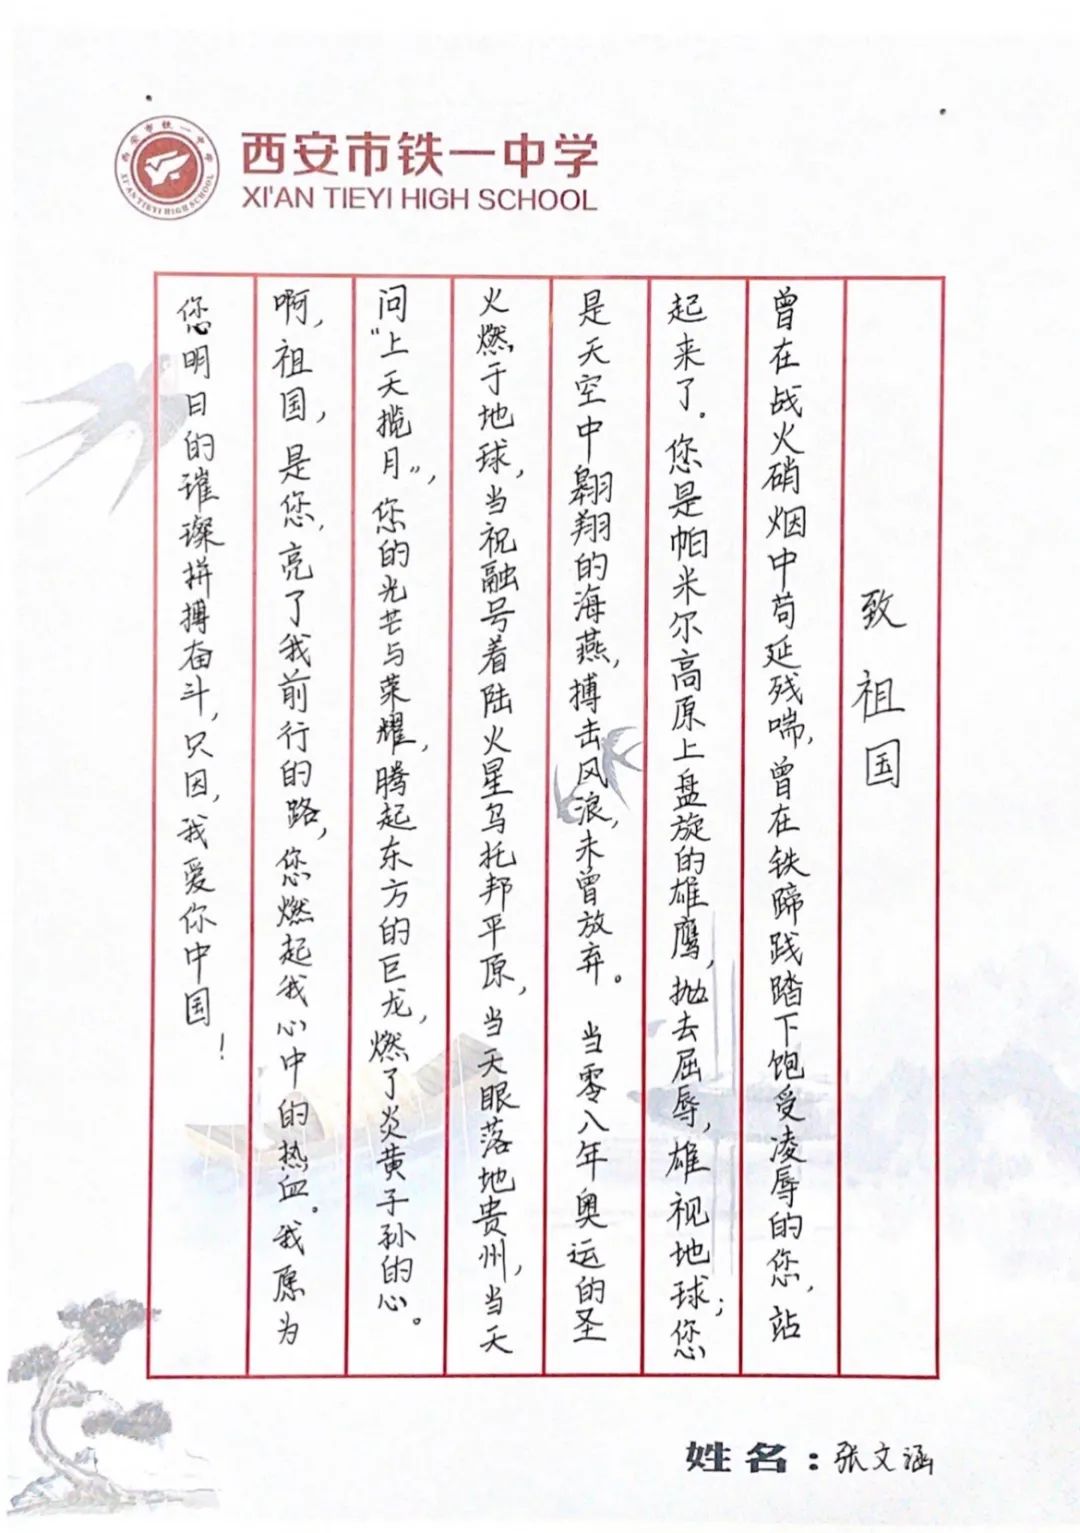 西安市铁一中学
XI'AN TIEYI HIGH SCHOOL
西安市铁一中学
XI'AN TIEYI HIGH SCHOOL
致祖国
曾在战火硝烟中苟延残喘，曾在铁蹄践踏下饱受凌辱的您，站
起来了。您是帕米尔高原上盘旋的雄鹰，抛去屈辱，雄视地球；您
是天空中翱翔的海燕，搏击风浪，未曾放弃。当零八年奥运的圣
火燃于地球，当祝融号着陆火星乌托邦平原，当天眼落地贵州，当天
问“上天揽月”，您的光芒与荣耀，腾起东方的巨龙，燃了炎黄子孙的心。
啊，祖国，是您，亮了我前行的路，您燃起我心中的热血。我愿为
您明日的璀璨拼搏奋斗，只因，我爱你中国！
姓名：张文涵